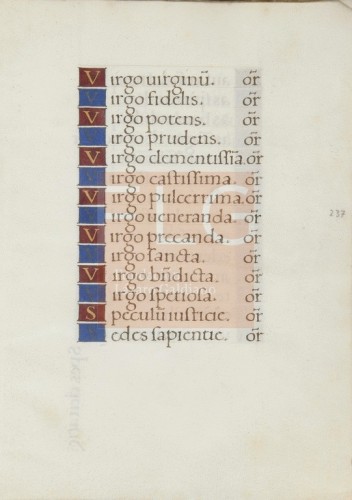 Virgo uirginū. or̄
Virgo fidelis. or̄
Virgo potens. or̄
Virgo prudens. or̄
Virgo clementissīa. or̄
Virgo castissima. or̄
Virgo pulcerrima. or̄
Virgo ueneranda. or̄
Virgo precanda. or̄
Virgo sancta. or̄
Virgo bn̄dicta. or̄
Virgo spetiosa. or̄
Speculū iusticie. or̄
Sedes sapientie. or̄
237